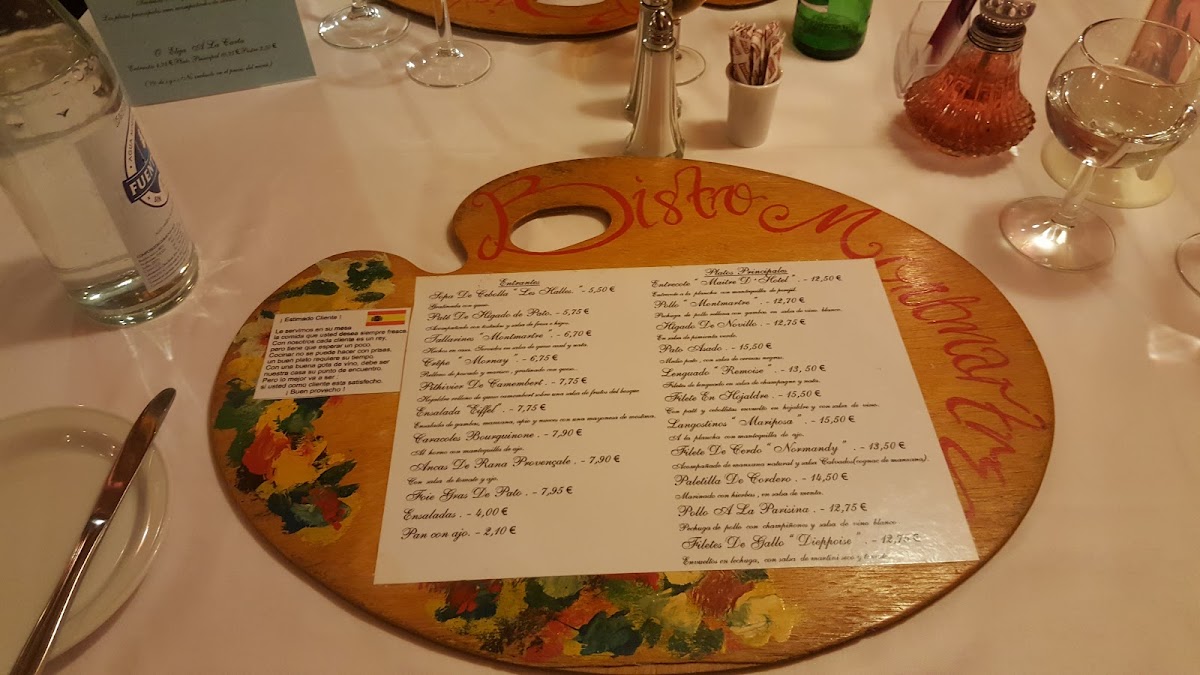 O Elija A La Carta
FUEN
Bistro Montmartre
¡ Estimado Cliente !
Le servimos en su mesa
la comida que usted desea siempre fresca.
Con nosotros cada cliente es un rey,
pero tiene que esperar un poco.
Cocinar no se puede hacer con prisas,
un buen plato requiere su tiempo.
Con una buena gota de vino, debe ser
nuestra casa su punto de encuentro.
Pero lo mejor va a ser
si usted como cliente esta satisfecho.
¡ Buen provecho !
Entrantes
Sopa De Cebolla "Les Halles". - 5,50 €
Gratinada con queso.
Paté De Higado de Pato. - 5,75 €
Acompañado con tostadas y salsa de fresa e higos.
Tallarines "Montmartre". - 6,70 €
Hechos en casa. Servidos en salsa de queso azul y nata.
Crêpe "Mornay". - 6,75 €
Relleno de pescado y marisco, gratinado con queso.
Pithivier De Camembert. - 7,75 €
Hojaldre relleno de queso camembert sobre una salsa de frutos del bosque.
Ensalada "Eiffel". - 7,75 €
Ensalada de gambas, manzana, apio y nueces con una mayonesa de mostaza.
Caracoles Bourguinone. - 7,90 €
Al horno con mantequilla de ajo.
Ancas De Rana Provençale. - 7,90 €
Con salsa de tomate y ajo.
Foie Gras De Pato. - 7,95 €
Ensaladas. - 4,00 €
Pan con ajo. - 2,10 €
Platos Principales
Entrecote "Maitre D'Hotel". - 12,50 €
Entrecote a la plancha con mantequilla de perejil.
Pollo "Montmartre". - 12,70 €
Pechuga de pollo rellena con gambas en salsa de vino blanco.
Higado De Novillo. - 12,75 €
En salsa de pimienta verde.
Pato Asado. - 15,50 €
Medio pato, con salsa de cerezas negras.
Lenguado "Remoise". - 13,50 €
Filetes de lenguado en salsa de champagne y nata.
Filete En Hojaldre. - 15,50 €
Con paté y cebollitas envuelto en hojaldre y con salsa de vino.
Langostinos "Mariposa". - 15,50 €
A la plancha con mantequilla de ajo.
Filete De Cerdo "Normandy". - 13,50 €
Acompañado de manzana natural y salsa Calvados(cognac de manzana).
Paletilla De Cordero. - 14,50 €
Marinado con hierbas, en salsa de menta.
Pollo A La Parisina. - 12,75 €
Pechuga de pollo con champiñones y salsa de vino blanco
Filetes De Gallo "Dieppoise". - 12,75 €
Envueltos en lechuga, con salsa de martini seco y